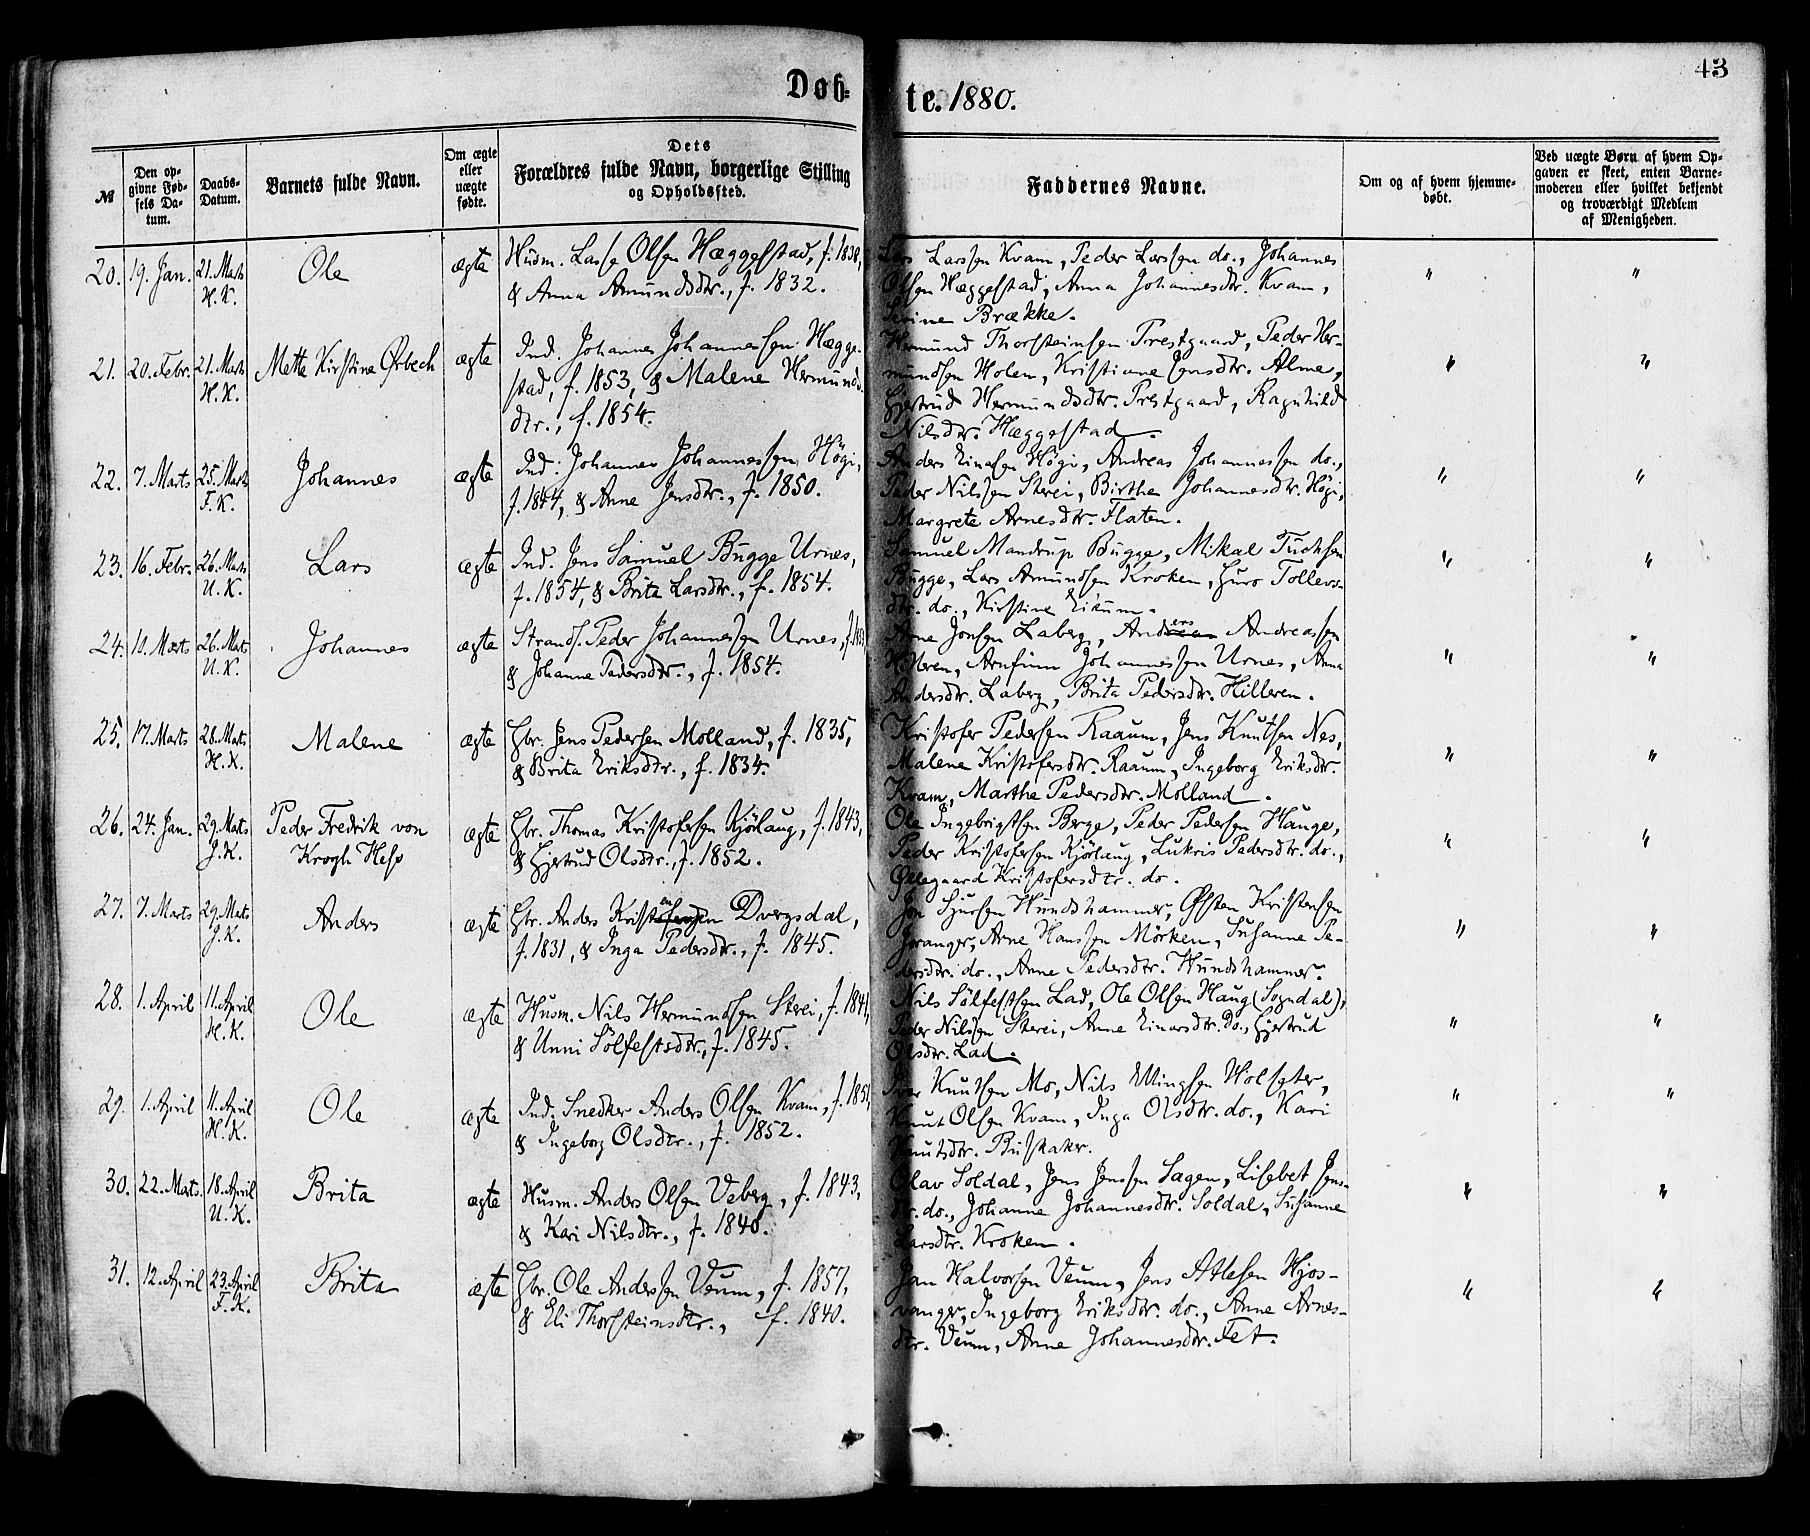 43
Døb-
te. 1880.
№
Den op-
givne Fød-
sels Da-
tum.
Daabs-
Datum.
Barnets fulde Navn.
Om ægte
eller
uægte
fødte.
Dets
Forældres fulde Navn, borgerlige Stilling
og Opholdssted.
Faddernes Navne.
Om og af hvem hjemme-
døbt.
Ved uægte Børn af hvem Op-
gaven er skeet, enten Barne-
moderen eller hvilket bekjendt
og troværdigt Medlem
af Menigheden.
20. 19. Jan. 21. Marts
H. K.
Ole
ægte
Husm. Lasse Olsen Hæggestad, f. 1838,
& Anna Amundsdtr., f. 1832.
Lars Larssen Kvam, Peder Larssen do., Johannes
Olsen Hæggestad, Anna Johannesdtr. Kvam,
Brække.
" "
21. 20. Febr. 21. Marts
H. K.
Mette Kirstine Ørbech
ægte
Ind. Johannes Johannessen Hægge-
stad, f. 1853, & Malene Hermunds-
dtr., f. 1854.
Hermund Thorsteinsen Prestgaard, Peder Her-
mundsen Holen, Kristiane Jensdtr. Alme,
Gjertrud Hermundsdtr. Prestgaard, Ragnhild
Nilsdtr. Hæggestad.
" "
22. 7. Marts 25. Marts
F. K.
Johannes
ægte
Ind. Johannes Johannessen Högi,
f. 1844, & Anne Jensdtr., f. 1850.
Anders Einarsen Högi, Andreas Johannessen do.,
Peder Nilssen Sterei, Birthe Johannesdtr. Högi,
Margrete Arnesdtr. Flaten.
" "
23. 16. Febr. 26. Marts
U. K.
Lars
ægte
Ind. Jens Samuel Bugge Urnes,
f. 1854, & Brita Larsdtr., f. 1854.
Samuel Mandrup Bugge, Mikal Tuchsen
Bugge, Lars Amundsen Kroken, Guro Tollevs-
dtr. do., Kirstine Eikum.
" "
24. 10. Marts 26. Marts
U. K.
Johannes
ægte
Strands. Peder Johannessen Urnes,
& Johanne Pedersdtr., f. 1854.
Arne Jonsen Laberg, Anders Andreassen
Hilleren, Arnfinn Johannessen Urnes, Anna
Andersdtr. Laberg, Brita Pedersdtr. Hilleren.
" "
25. 17. Marts 28. Marts
H. K.
Malene
ægte
Gbr. Jens Pedersen Molland, f. 1835,
& Brita Eriksdtr., f. 1834.
Kristofer Pedersen Raaum, Jens Knutsen Nes,
Malene Kristofersdtr. Raaum, Ingeborg Eriksdtr.
Kvam, Marthe Pedersdtr. Molland.
" "
26. 24. Jan. 29. Marts
J. K.
Peder Fredrik von
Krogh Hess
ægte
Gbr. Thomas Kristofersen Kjörlaug, f. 1843,
& Gjertrud Olsdtr., f. 1852.
Ole Ingebrigtsen Berge, Peder Pedersen Hauge,
Peder Kristofersen Kjörlaug, Lukris Pedersdtr. do.,
Øllegaard Kristofersdtr. do.
" "
27. 7. Marts 29. Marts
J. K.
Anders
ægte
Gbr. Anders Kristensen Dvergsdal,
f. 1831, & Inga Pedersdtr., f. 1845.
Jon Sjursen Hundshammer, Østen Kristensen
Joranger, Arne Hanssen Mörken, Susanne Pe-
dersdtr. do., Anne Pedersdtr. Hundshammer.
" "
28. 1. April 11. April
H. K.
Ole
ægte
Husm. Nils Hermundsen Sterei, f. 1841,
& Unni Sölfestsdtr., f. 1845.
Nils Sölfestsen Lad, Ole Olsen Haug (Sogndal),
Peder Nilssen Sterei, Anne Einarsdtr. do., Gjertrud
Olsdtr. Lad.
" "
29. 1. April 11. April
H. K.
Ole
ægte
Ind. Snedker Anders Olsen Kvam, f. 1851,
& Ingeborg Olsdtr., f. 1852.
Iver Knutsen Mo, Nils Ellingsen Holseter,
Knut Olsen Kvam, Inga Olsdtr. do., Kari
Knutsdtr. Buskaker.
" "
30. 22. Marts. 18. April
U. K.
Brita
ægte
Husm. Anders Olsen Veberg, f. 1843,
& Kari Nilsdtr., f. 1840.
Olav Soldal, Jens Jenssen Sagen, Lisebet Jens-
dtr. do., Johanne Johannesdtr. Soldal, Susanne
Larsdtr. Kroken.
" "
31. 12. April 23. April
F. K.
Brita
ægte
Gbr. Ole Anderssen Veum, f. 1857,
& Eli Thorsteinsdtr., f. 1840.
Jan Halvorsen Veum, Jens Atlesen Hjos-
vanger, Ingeborg Eriksdtr. do., Anne Arnes-
dtr. Veum, Anne Johannesdtr. Fet.
" "